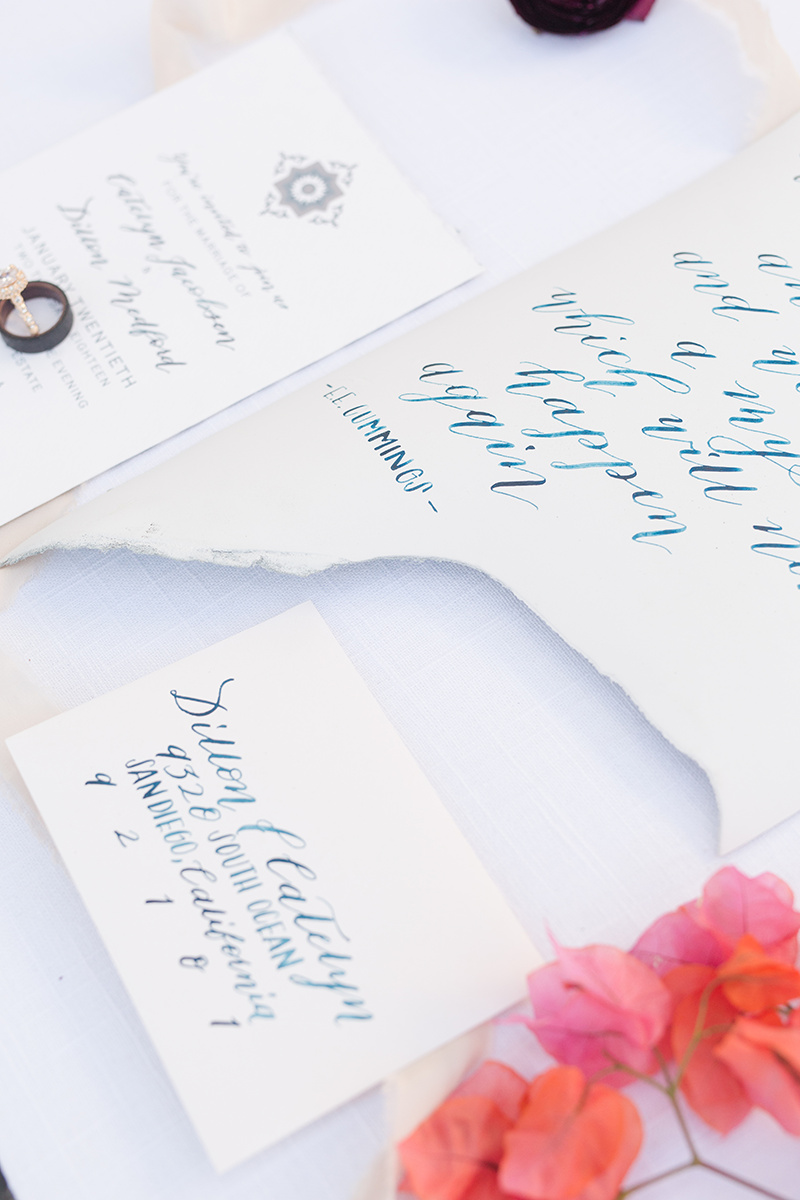 You're invited to join us
FOR THE MARRIAGE OF
Catelyn Jacobsen
&
Dillon Medford
JANUARY TWENTIETH
TWO EIGHTEEN
EVENING
and
a
which will
happen
again
-E.E. CUMMINGS-
Dillon & Catelyn
9320 SOUTH OCEAN
SAN DIEGO, California
9 2 1 0 1